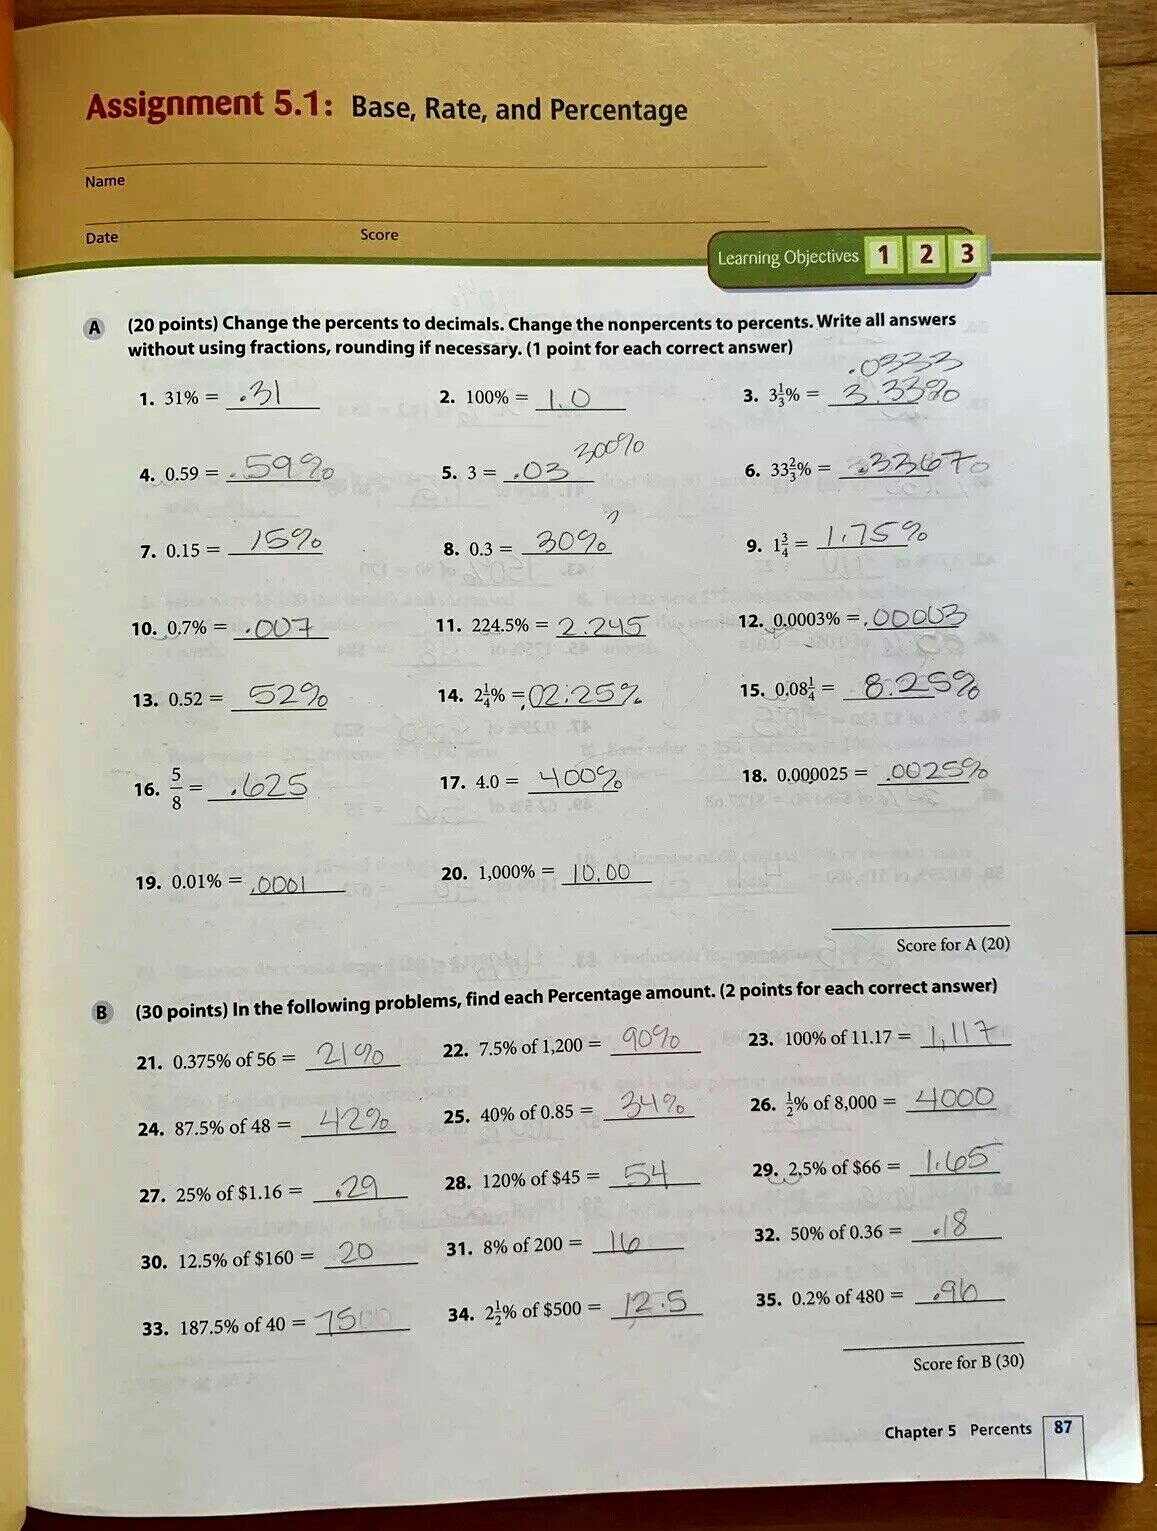 Assignment 5.1: Base, Rate, and Percentage
Name
Date Score
Learning Objectives 1 2 3
A (20 points) Change the percents to decimals. Change the nonpercents to percents. Write all answers
without using fractions, rounding if necessary. (1 point for each correct answer)
.0333
1. 31% = .31 2. 100% = 1.0 3. 3 1/3% = 3.33%
300%
4. 0.59 = .59% 5. 3 = .03 6. 33 2/3% = .3367%
?
7. 0.15 = 15% 8. 0.3 = 30% 9. 1 3/4 = 1.75%
10. 0.7% = .007 11. 224.5% = 2.245 12. 0.0003% = .00003
13. 0.52 = 52% 14. 2 1/4% = .02.25% 15. 0.08 1/4 = 8.25%
16. 5/8 = .625 17. 4.0 = 400% 18. 0.000025 = .0025%
19. 0.01% = .0001 20. 1,000% = 10.00
Score for A (20)
B (30 points) In the following problems, find each Percentage amount. (2 points for each correct answer)
21. 0.375% of 56 = 21% 22. 7.5% of 1,200 = 90% 23. 100% of 11.17 = 1,117
24. 87.5% of 48 = 42% 25. 40% of 0.85 = 34% 26. 1/2% of 8,000 = 4000
27. 25% of $1.16 = .29 28. 120% of $45 = 54 29. 2.5% of $66 = 1.65
30. 12.5% of $160 = 20 31. 8% of 200 = 16 32. 50% of 0.36 = .18
33. 187.5% of 40 = 7500 34. 2 1/2% of $500 = 12.5 35. 0.2% of 480 = .96
Score for B (30)
Chapter 5 Percents 87